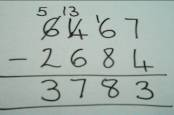 5 13 1
6467
- 2684
3783